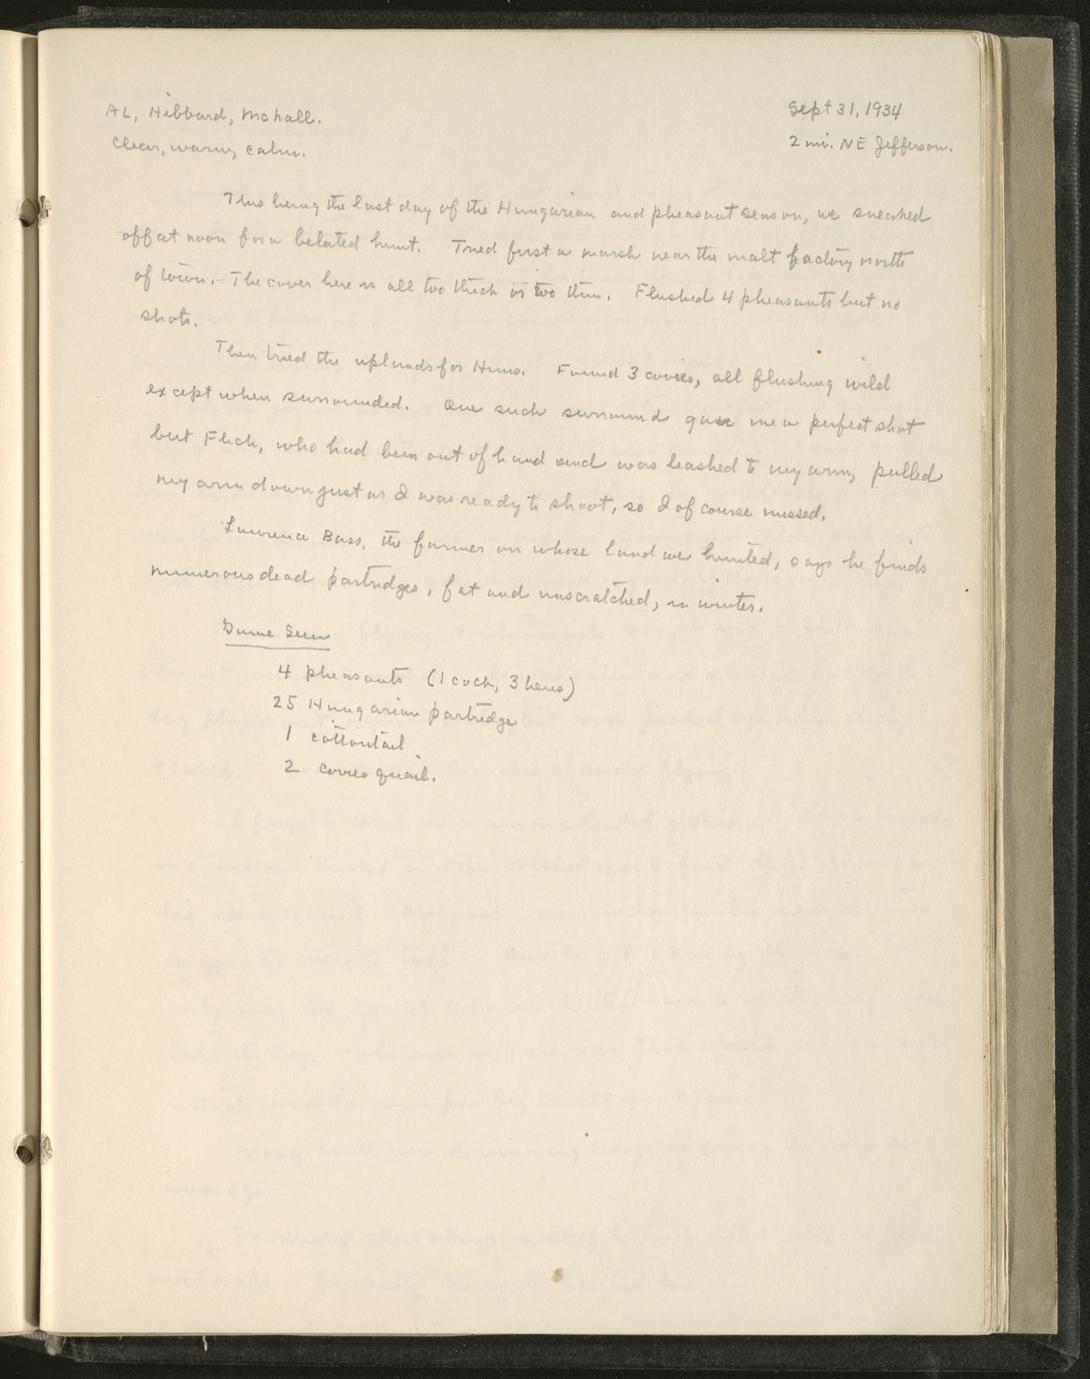 AL, Hibbard, McNall.
Sept 31, 1934
Clear, warm, calm.
2 mi. NE Jefferson.
This being the last day of the Hungarian and pheasant season, we sneaked
off at noon for a belated hunt. Tried first a marsh near the malt factory north
of town. - The cover here is all too thick or too thin. Flushed 4 pheasants but no
shots.
Then tried the uplands for Huns. Found 3 covies, all flushing wild
except when surrounded. One such surround gave me a perfect shot
but Flick, who had been out of hand and was leashed to my arm, pulled
my arm down just as I was ready to shoot, so I of course missed.
Lawrence Bass, the farmer on whose land we hunted, says he finds
numerous dead partridges, fat and unscratched, in winter.
Game Seen
4 pheasants (1 cock, 3 hens)
25 Hungarian partridge
1 cottontail
2 covies quail.